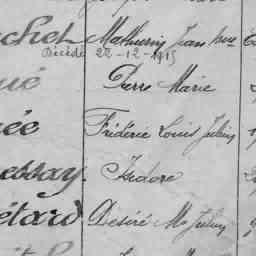 chet Mathurin Jean Mie
Décédé 22-12-1915
ué Pierre Marie
ée Frédéric Louis Julien
essay Isidore
étard Désiré Me Julien